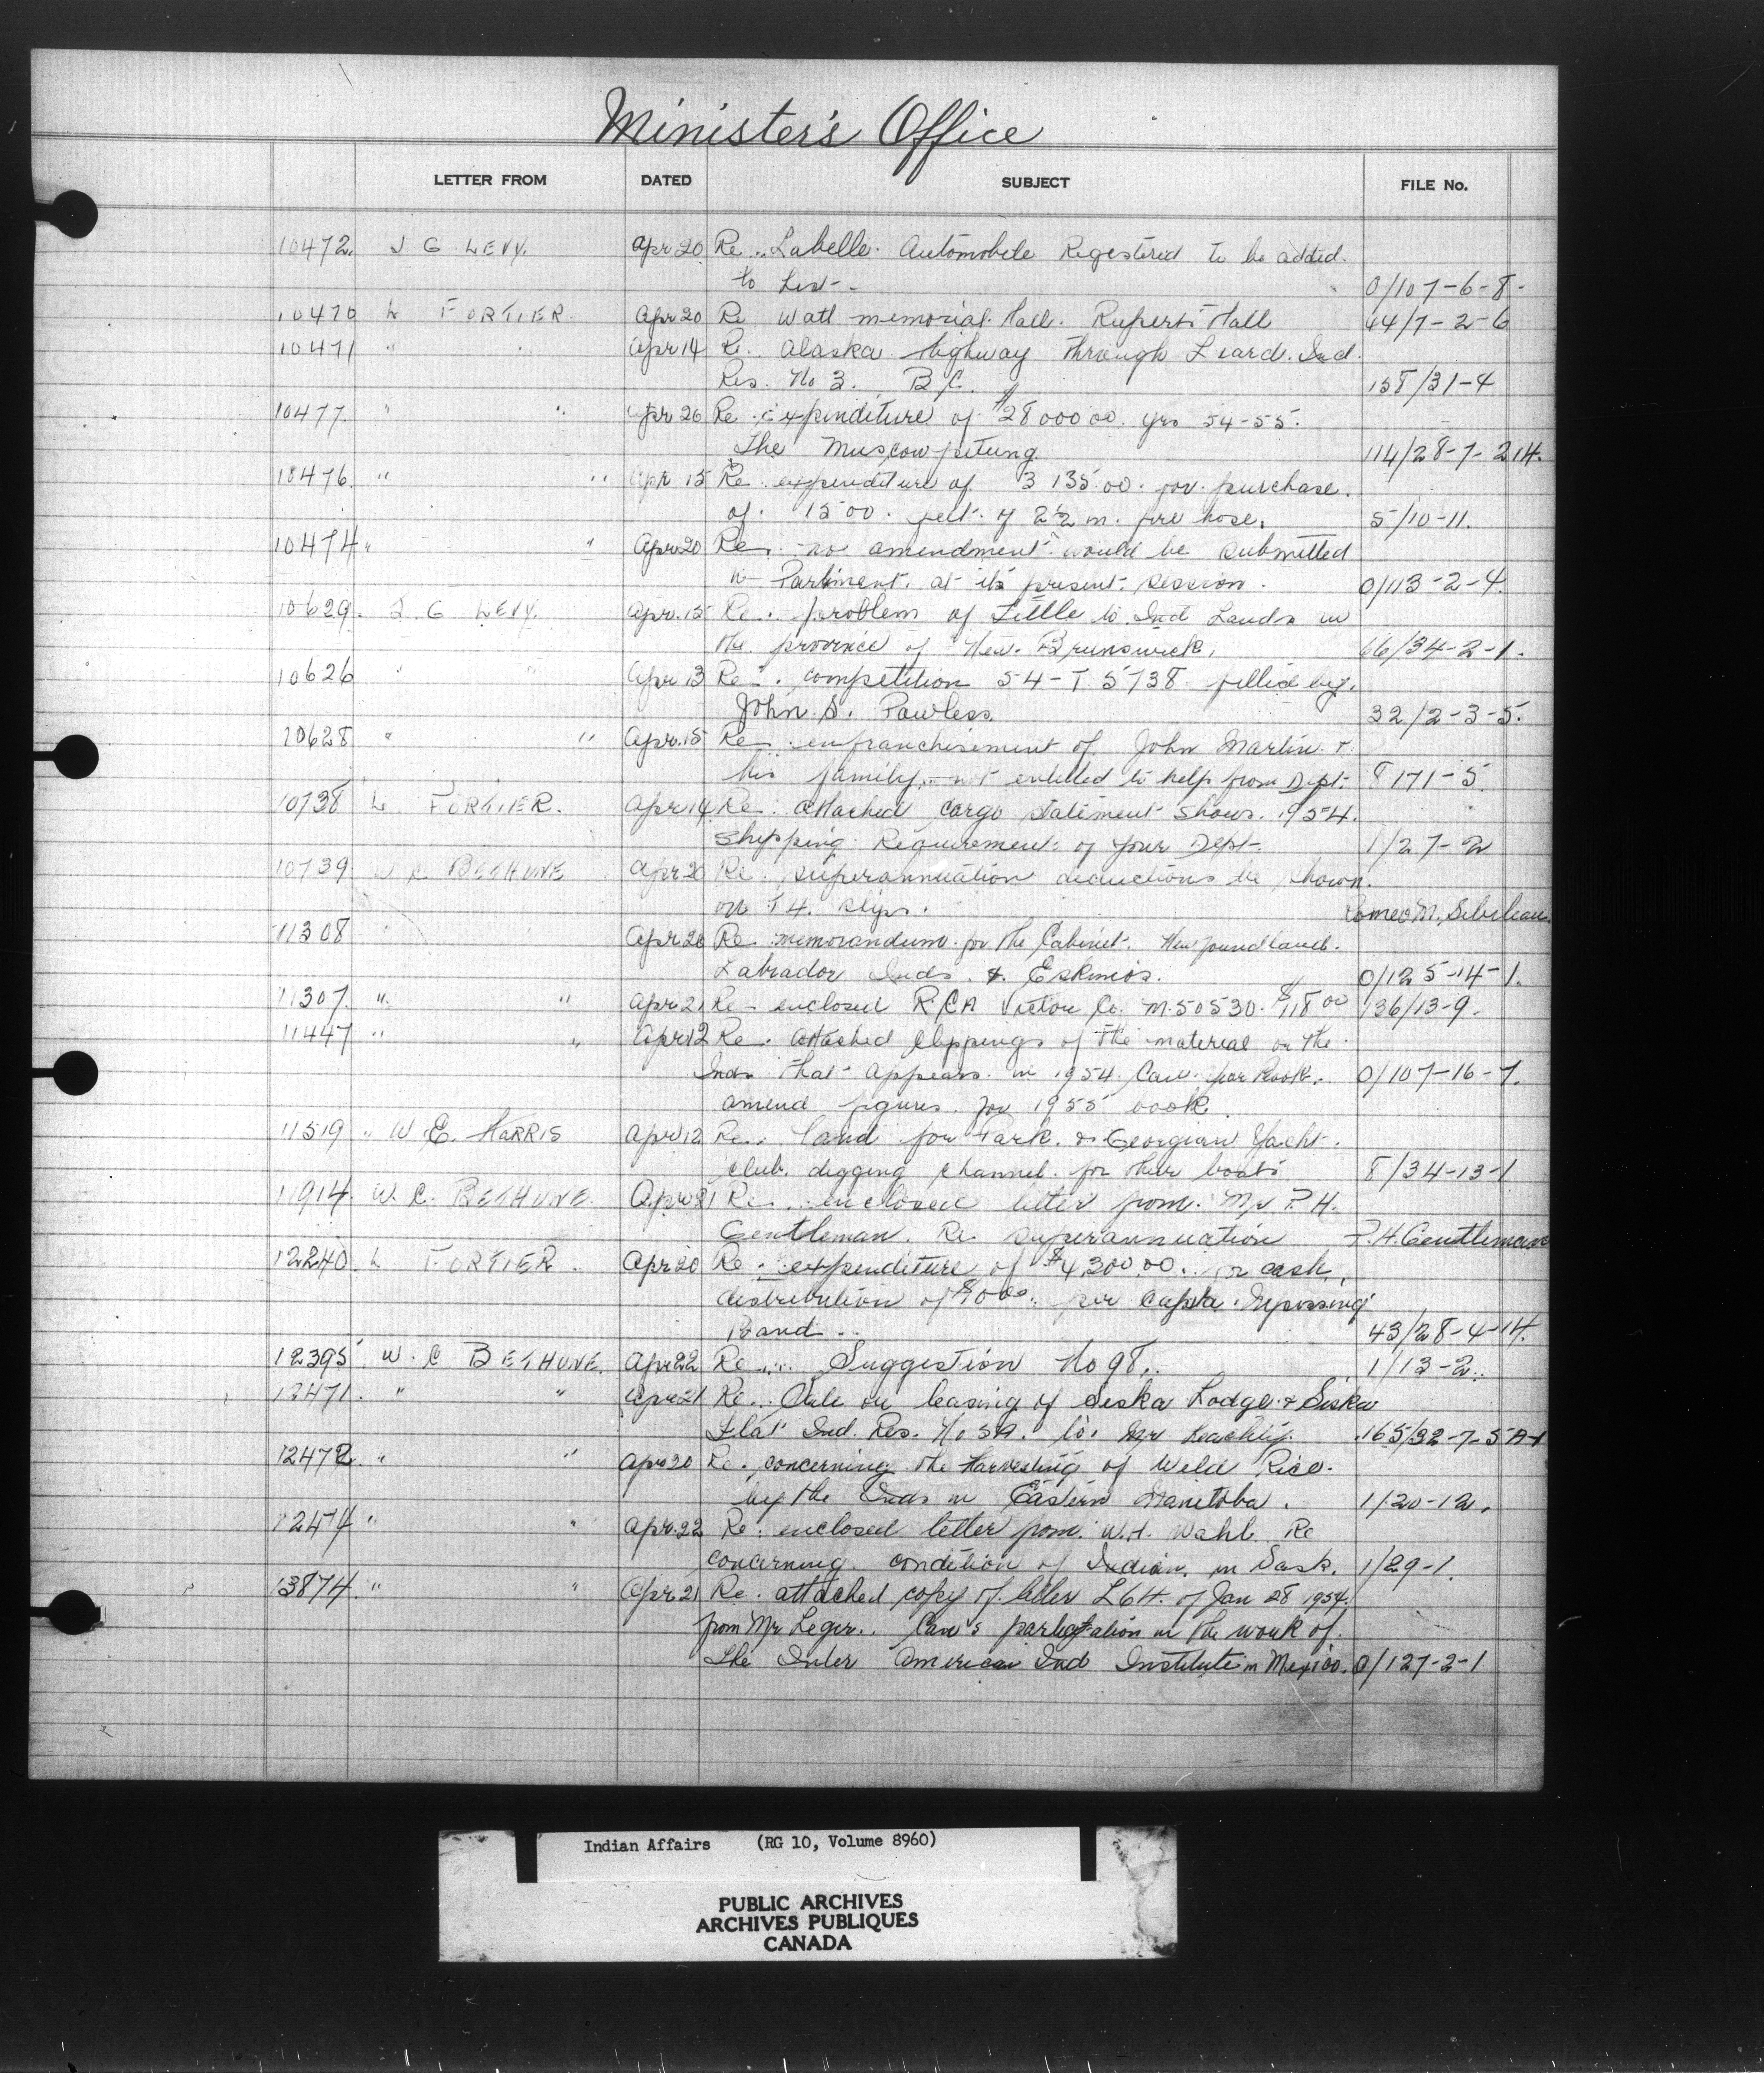 Minister's Office
LETTER FROM DATED SUBJECT FILE No.
10472. J G LEVY. Apr 20 Re.. Labelle. Automobile Registered to be added.
to List-. 0/107-6-8-
10470 L FORTIER. Apr 20 Re Watt memorial Hall. Ruperts Hall 44/7-2-6
10471 " Apr 14 Re. Alaska highway through Liard. Ind.
Res. No 3. B.C. 158/31-4
10477. " " Apr 26 Re expenditure of $28000 00. yrs 54-55.
The Muscowpetung 114/28-7-214.
10476. " " Apr 15 Re. expenditure of 3 135.00. for purchase.
of. 1500. feet. of 2½ in. fire hose. 5/10-11.
10474 " " Apr 20 Re. no amendment would be submitted
in Parliment. at its present session. 0/113-2-4.
10629. J. G. LEVY. Apr. 15 Re. problem of Tittle to Ind Lands in
the province of New. Brunswick. 66/34-2-1.
10626 " " Apr 13 Re. competition 54-T 5738 filled by.
John S. Powless. 32/2-3-5.
10628 " " Apr. 15 Re enfranchisement of John Martin. &
his family. not entitled to help from Dept. 8 171-5.
10738 L FORTIER. Apr 14 Re: attached Cargo statement shows. 1954.
Shipping Requirements of your Dept-. 1/27-2
10739. W C BETHUNE Apr 20 Re. superannuation deductions be shown.
on T4. slips. Romeo M.
11308 Apr 20 Re memorandum for the Cabinet. Newfoundland.
Labrador Inds. & Eskimos. 0/125-14-1.
11307. " " Apr 21 Re enclosed RCA Victor Co. M.50530. $118 00 136/13-9.
11447 " " Apr 12 Re. attached clippings of the material on the
Inds that appears. in 1954. Can. Book. 0/107-16-7.
amend figures for 1955 book.
11519 " W. E. HARRIS Apr 12 Re. land for Park. & Georgian Yacht.
club. digging channel. for their boats 8/34-13-1
11914 W. C. BETHUNE. Apr 21 Re.. enclosed letter from. Mr P. H.
Gentleman. Re superannuation P.H. Gentleman
12240. L FORTIER. Apr 20 Re. expenditure of $4,300.00. for cash.
distribution of per Capita.
Band.. 43/28-4-14.
12395 W. C BETHUNE. Apr 22 Re... Suggestion No 98.. 1/13-2.
12471. " " Apr 21 Re.. Sale or leasing of Siska Lodge & Siska
Flat Ind. Res. No 5A. to. Mr 165/32-7-5A-1
12472. " " Apr 20 Re. concerning the Harvesting of Wild Rice.
by the Inds in Eastern Manitoba. 1/20-12.
12474 " " Apr. 22 Re. enclosed letter from. W.H. Wahl. Re
concerning condition of Indian. in Sask. 1/29-1.
13874. " " Apr 21 Re. attached copy of letter L64. of Jan 28 1954.
from Mr Leger.. Can's in the work of.
the Inter American Ind Institute in Mexico. 0/127-2-1
Indian Affairs (RG 10, Volume 8960)
PUBLIC ARCHIVES
ARCHIVES PUBLIQUES
CANADA